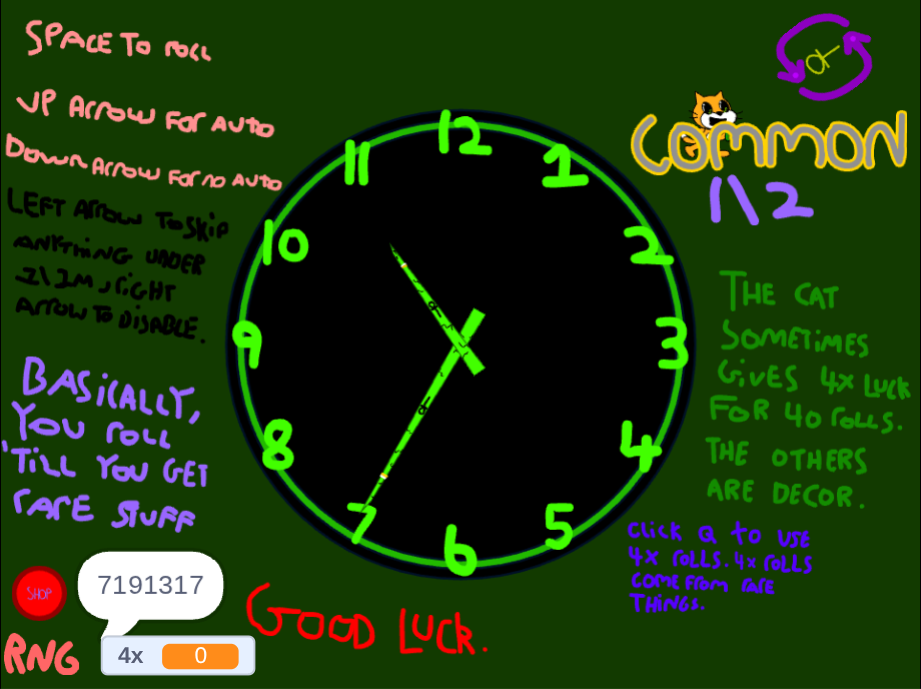 SPACE TO roll
UP Arrow For AUTO
Down Arrow For no AUTO
LEFT Arrow To SKIP
ANYTHING UNDER
1\1M, rIGHT
Arrow TO DISABLE.
BASICALLY,
YOU roll
'TILL YOU GET
rARE STUFF
SHOP
7191317
RNG
4x 0
GOOD LUCK.
12
1
2
3
4
5
6
7
8
9
10
11
COMMON
1\2
THE CAT
SOMETIMES
GIVES 4X LUCK
FOR 40 rOLLS.
THE OTHERS
ARE DECOR.
CLICK Q TO USE
4X rOLLS. 4X rOLLS
COME FROM rARE
THINGS.